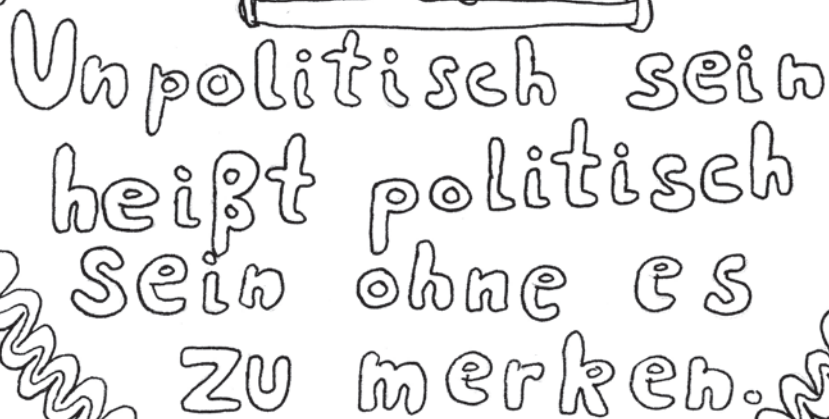 Unpolitisch sein
heißt politisch
sein ohne es
zu merken.